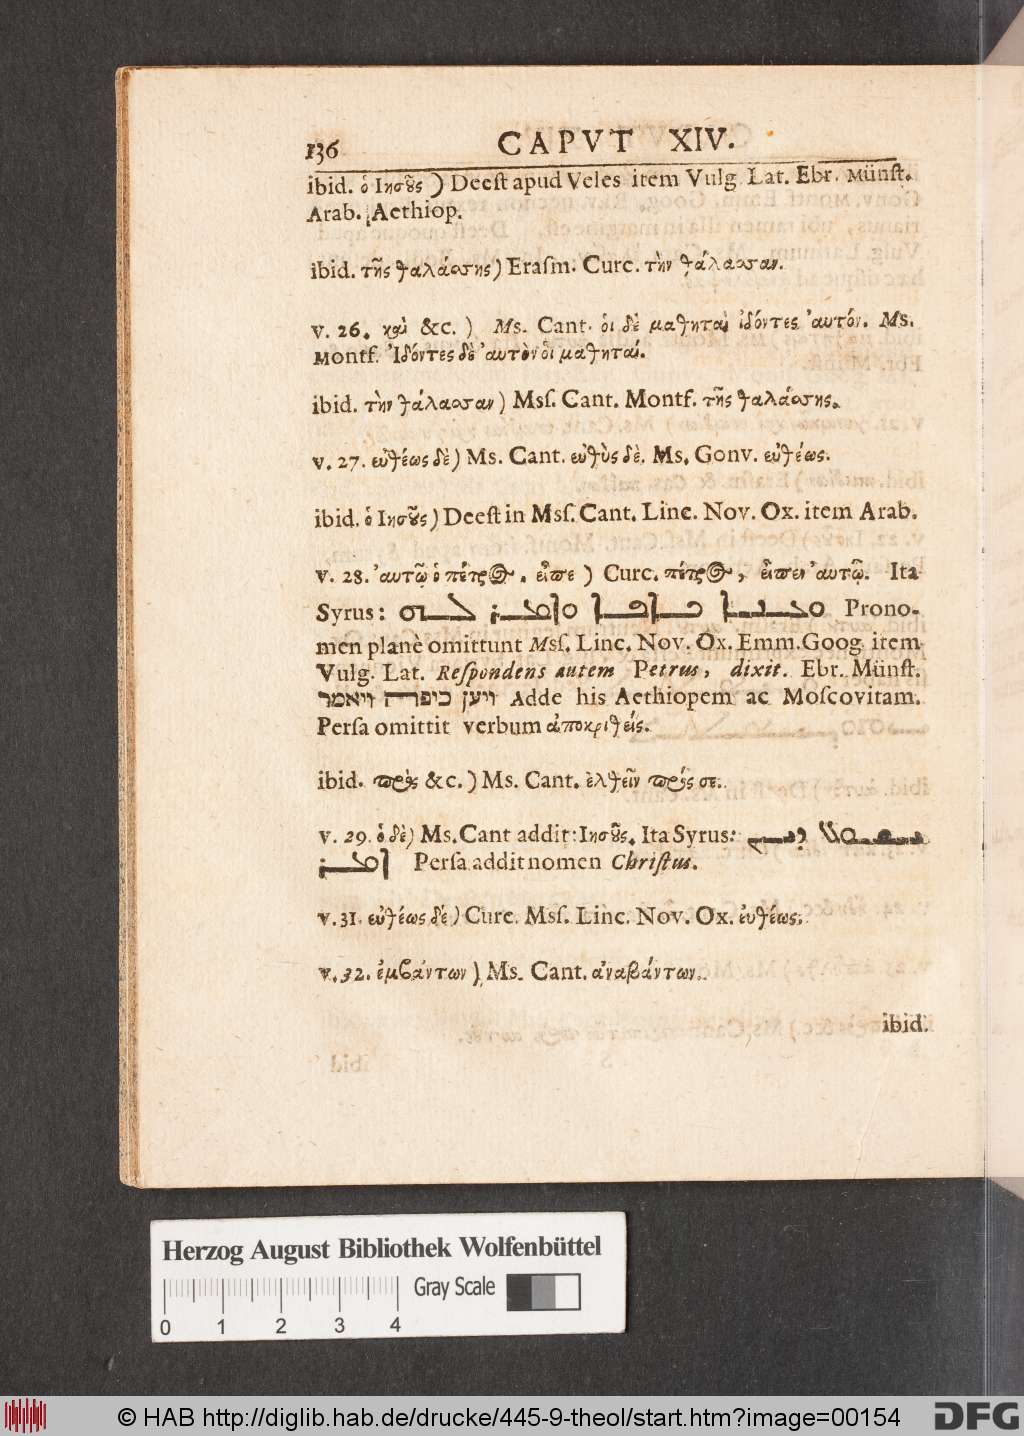 136 CAPVT XIV.
ibid. ὁ Ιησȣ̃ς ) Deeſt apud Veles item Vulg. Lat. Ebr. Münſt.
Arab. Aethiop.
ibid. τῆς θαλάσσης) Eraſm. Curc. τὴν θάλασσαν.
v. 26. καὶ &c. ) Ms. Cant. ὁι δὲ μαθηταὶ ἰδόντες ἀυτόν. Ms.
Montf. Ἰδόντες δὲ ἀυτὸν ὁἱ μαθηταί.
ibid. τὴν θάλασσαν) Mſſ. Cant. Montf. τῆς θαλάσσης.
v. 27. εὐθέως δὲ) Ms. Cant. εὐθὺς δὲ. Ms. Gonv. εὐθέως.
ibid. ὁ Ιησȣ̃ς) Deeſt in Mſſ. Cant. Linc. Nov. Ox. item Arab.
v. 28. ἀυτῷ ὁ πέτρος. εἶπε ) Curc. πέτρος, εἶπεν ἀυτῷ. Ita
Syrus: ܘܥܢܐ ܟܐܦܐ ܘܐܡܪ ܠܗ Prono-
men planè omittunt Mſſ. Linc. Nov. Ox. Emm. Goog. item
Vulg. Lat. Reſpondens autem Petrus, dixit. Ebr. Münſt.
ויען כיפרה ויאמר Adde his Aethiopem ac Moſcovitam.
Perſa omittit verbum ἀποκριθείς.
ibid. πρὸς &c. ) Ms. Cant. ἐλθεῖν πρός σε.
v. 29. ὁ δὲ) Ms. Cant addit: Ιησȣ̃ς. Ita Syrus: ܝܫܘܥ ܕܝܢ
ܐܡܪ Perſa addit nomen Chriſtus.
v. 31. εὐθέως δέ) Curc. Mſſ. Linc. Nov. Ox. ἐυθέως.
v. 32. ἐμβάντων) Ms. Cant. ἀναβάντων.
ibid.
Herzog August Bibliothek Wolfenbüttel
Gray Scale
0 1 2 3 4
© HAB http://diglib.hab.de/drucke/445-9-theol/start.htm?image=00154 DFG